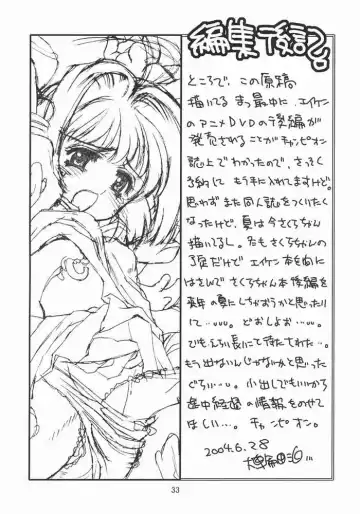 編集後記。
ところで、この原稿
描いてる まっ最中に、エイケン
のアニメDVDの後編が
発売されることがチャンピオン
誌上でわかったので、さっそく
予約して もう手に入れてますけど。
思わず また同人誌をつくりたく
なったけど、夏は今さくらちゃん
描いてるし。冬もさくらちゃんの
予定だけど エイケン本を間に
はさんで さくらちゃん本後編を
来年の夏にしちゃおうかと思ったり
して…。どおしよお…。
でもえらい長いこと待たされた…。
もう出ないんじゃないかと思った
ぐらい…。小出しでもいいから
途中経過の情報をのせて
ほしい…。チャンピオン。
2004.6.28
33